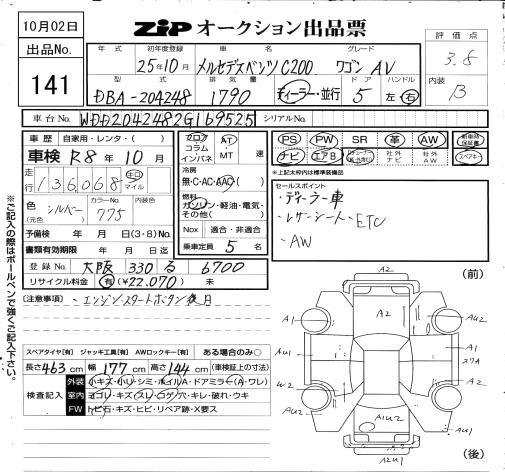 10月02日
ZIP オークション出品票
出品No.
141
年式
初年度登録
車名
グレード
評価点
25年10月
メルセデスベンツ C200
ワゴン AV
3.5
型式
排気量
ドア
ハンドル
内装
DBA-204248
1790
ディーラー・並行
5
左・右
B
車台No.
WDD2042482G169525
シリアルNo.
車歴
自家用・レンタ・( )
車検 R8年10月
走行
136,068
キロ
マイル
色
(元色)
シルバー
カラーNo.
775
内装色
予備検 年 月 日(3・8)No.
書類有効期限 年 月 日迄
登録No. 大阪 330 る 6700
リサイクル料金 有(¥22,070) 未
フロア
コラム
インパネ
AT・
MT
速
冷房
無・C・AC・AAC( )
燃料
ガソリン・軽油・電気・
その他( )
Nox 適合・非適合
乗車定員 5 名
PS PW SR 革 AW
新車時保証書
ナビ エアB
社外ナビ
社外AW
スペアキー
※上記太枠内は標準装備
セールスポイント
・ディーラー車
・レザーシート、ETC
・AW
(注意事項)
・エンジンスタートボタン後月
※ご記入の際はボールペンで強くご記入下さい。
スペアタイヤ[有] ジャッキ工具[有] AWロックキー[有] ある場合のみ○
長さ463cm 幅177cm 高さ144cm (車検証上の寸法)
検査記入
外装 小キズ・小リ・シミ・ホイルA・ドアミラー(A・ワレ)
室内 ヨゴレ・キズ・スレ・コゲ・穴・キレ・破れ・ウキ
FW トビ石・キズ・ヒビ・リペア跡・X要ス
(前)
A2
A1
A2
AU2
AU1
A1
スリA
W2
A2
AU2
A1U2
A2U1
(後)